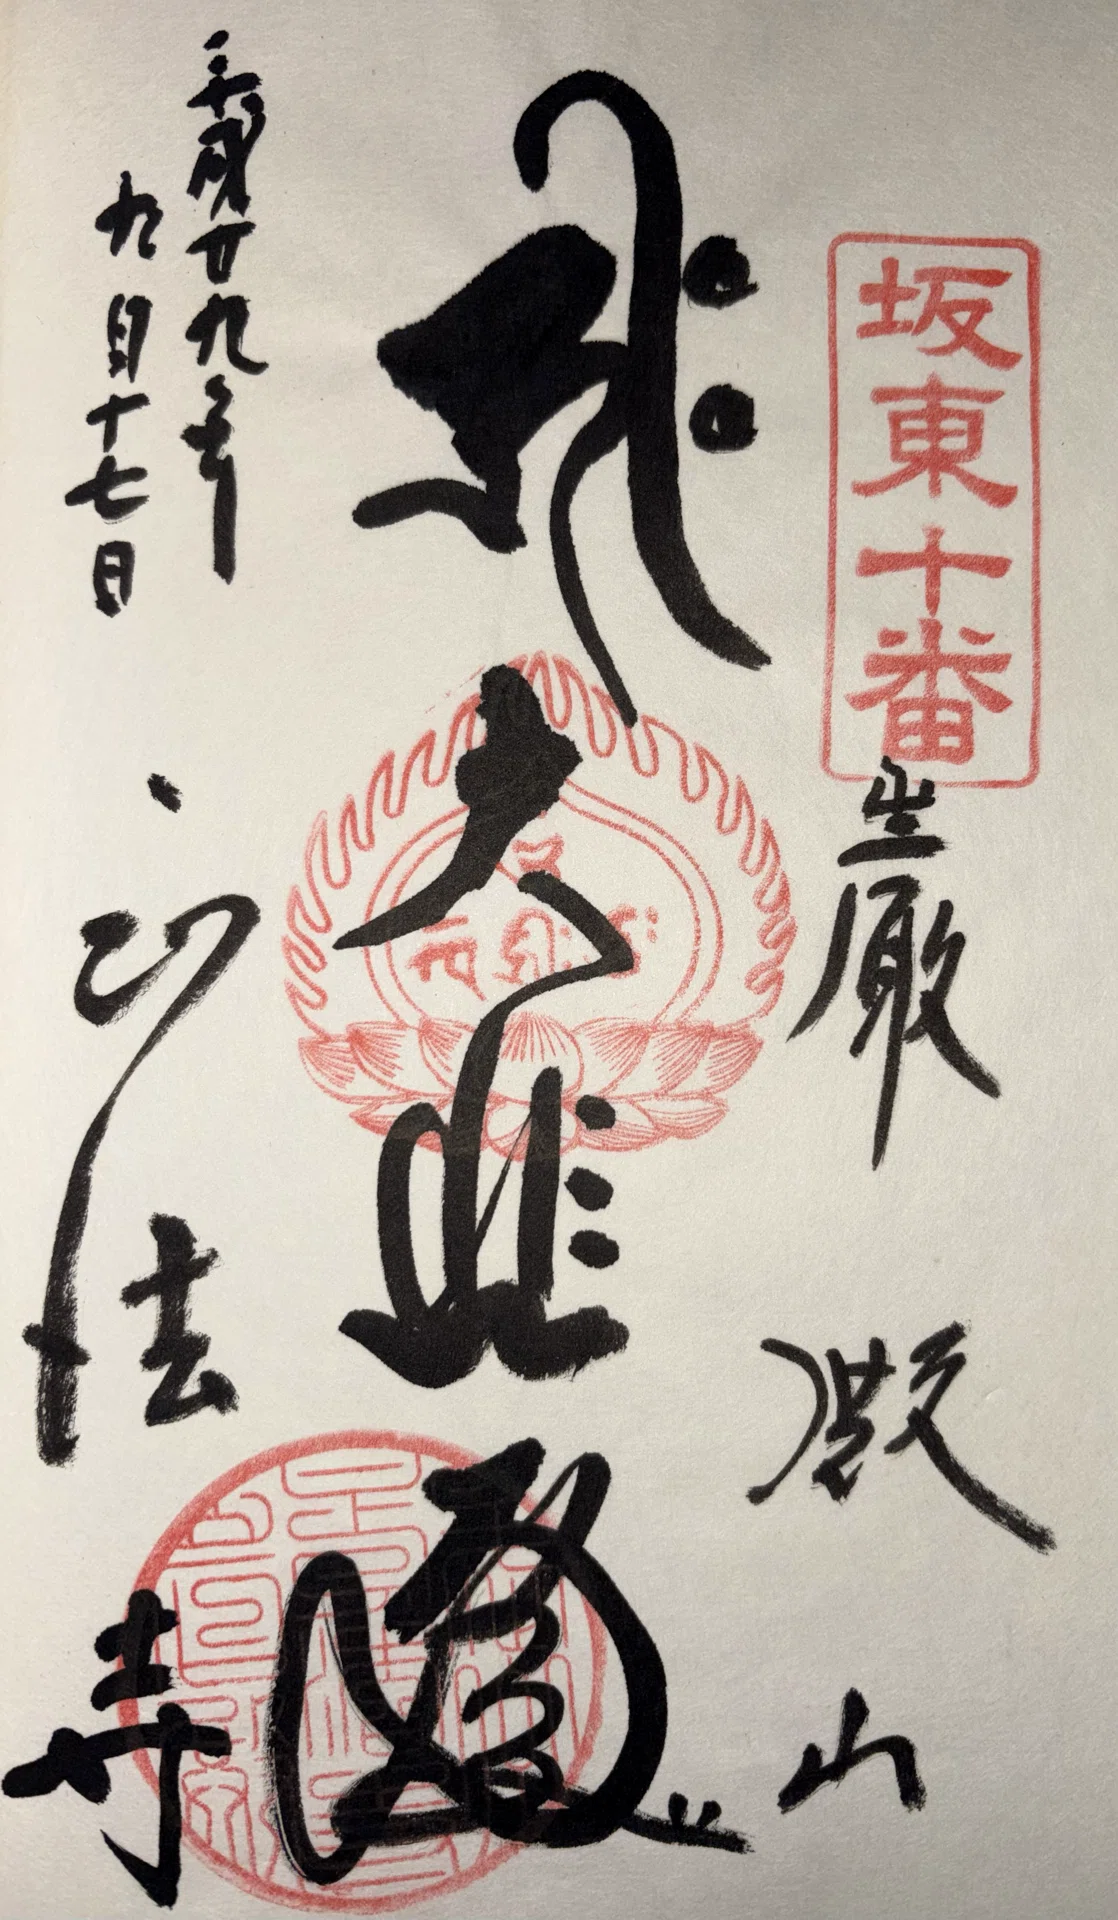 坂東十番
巌殿山
大悲閣
平成廿九年
九月十七日
正法寺